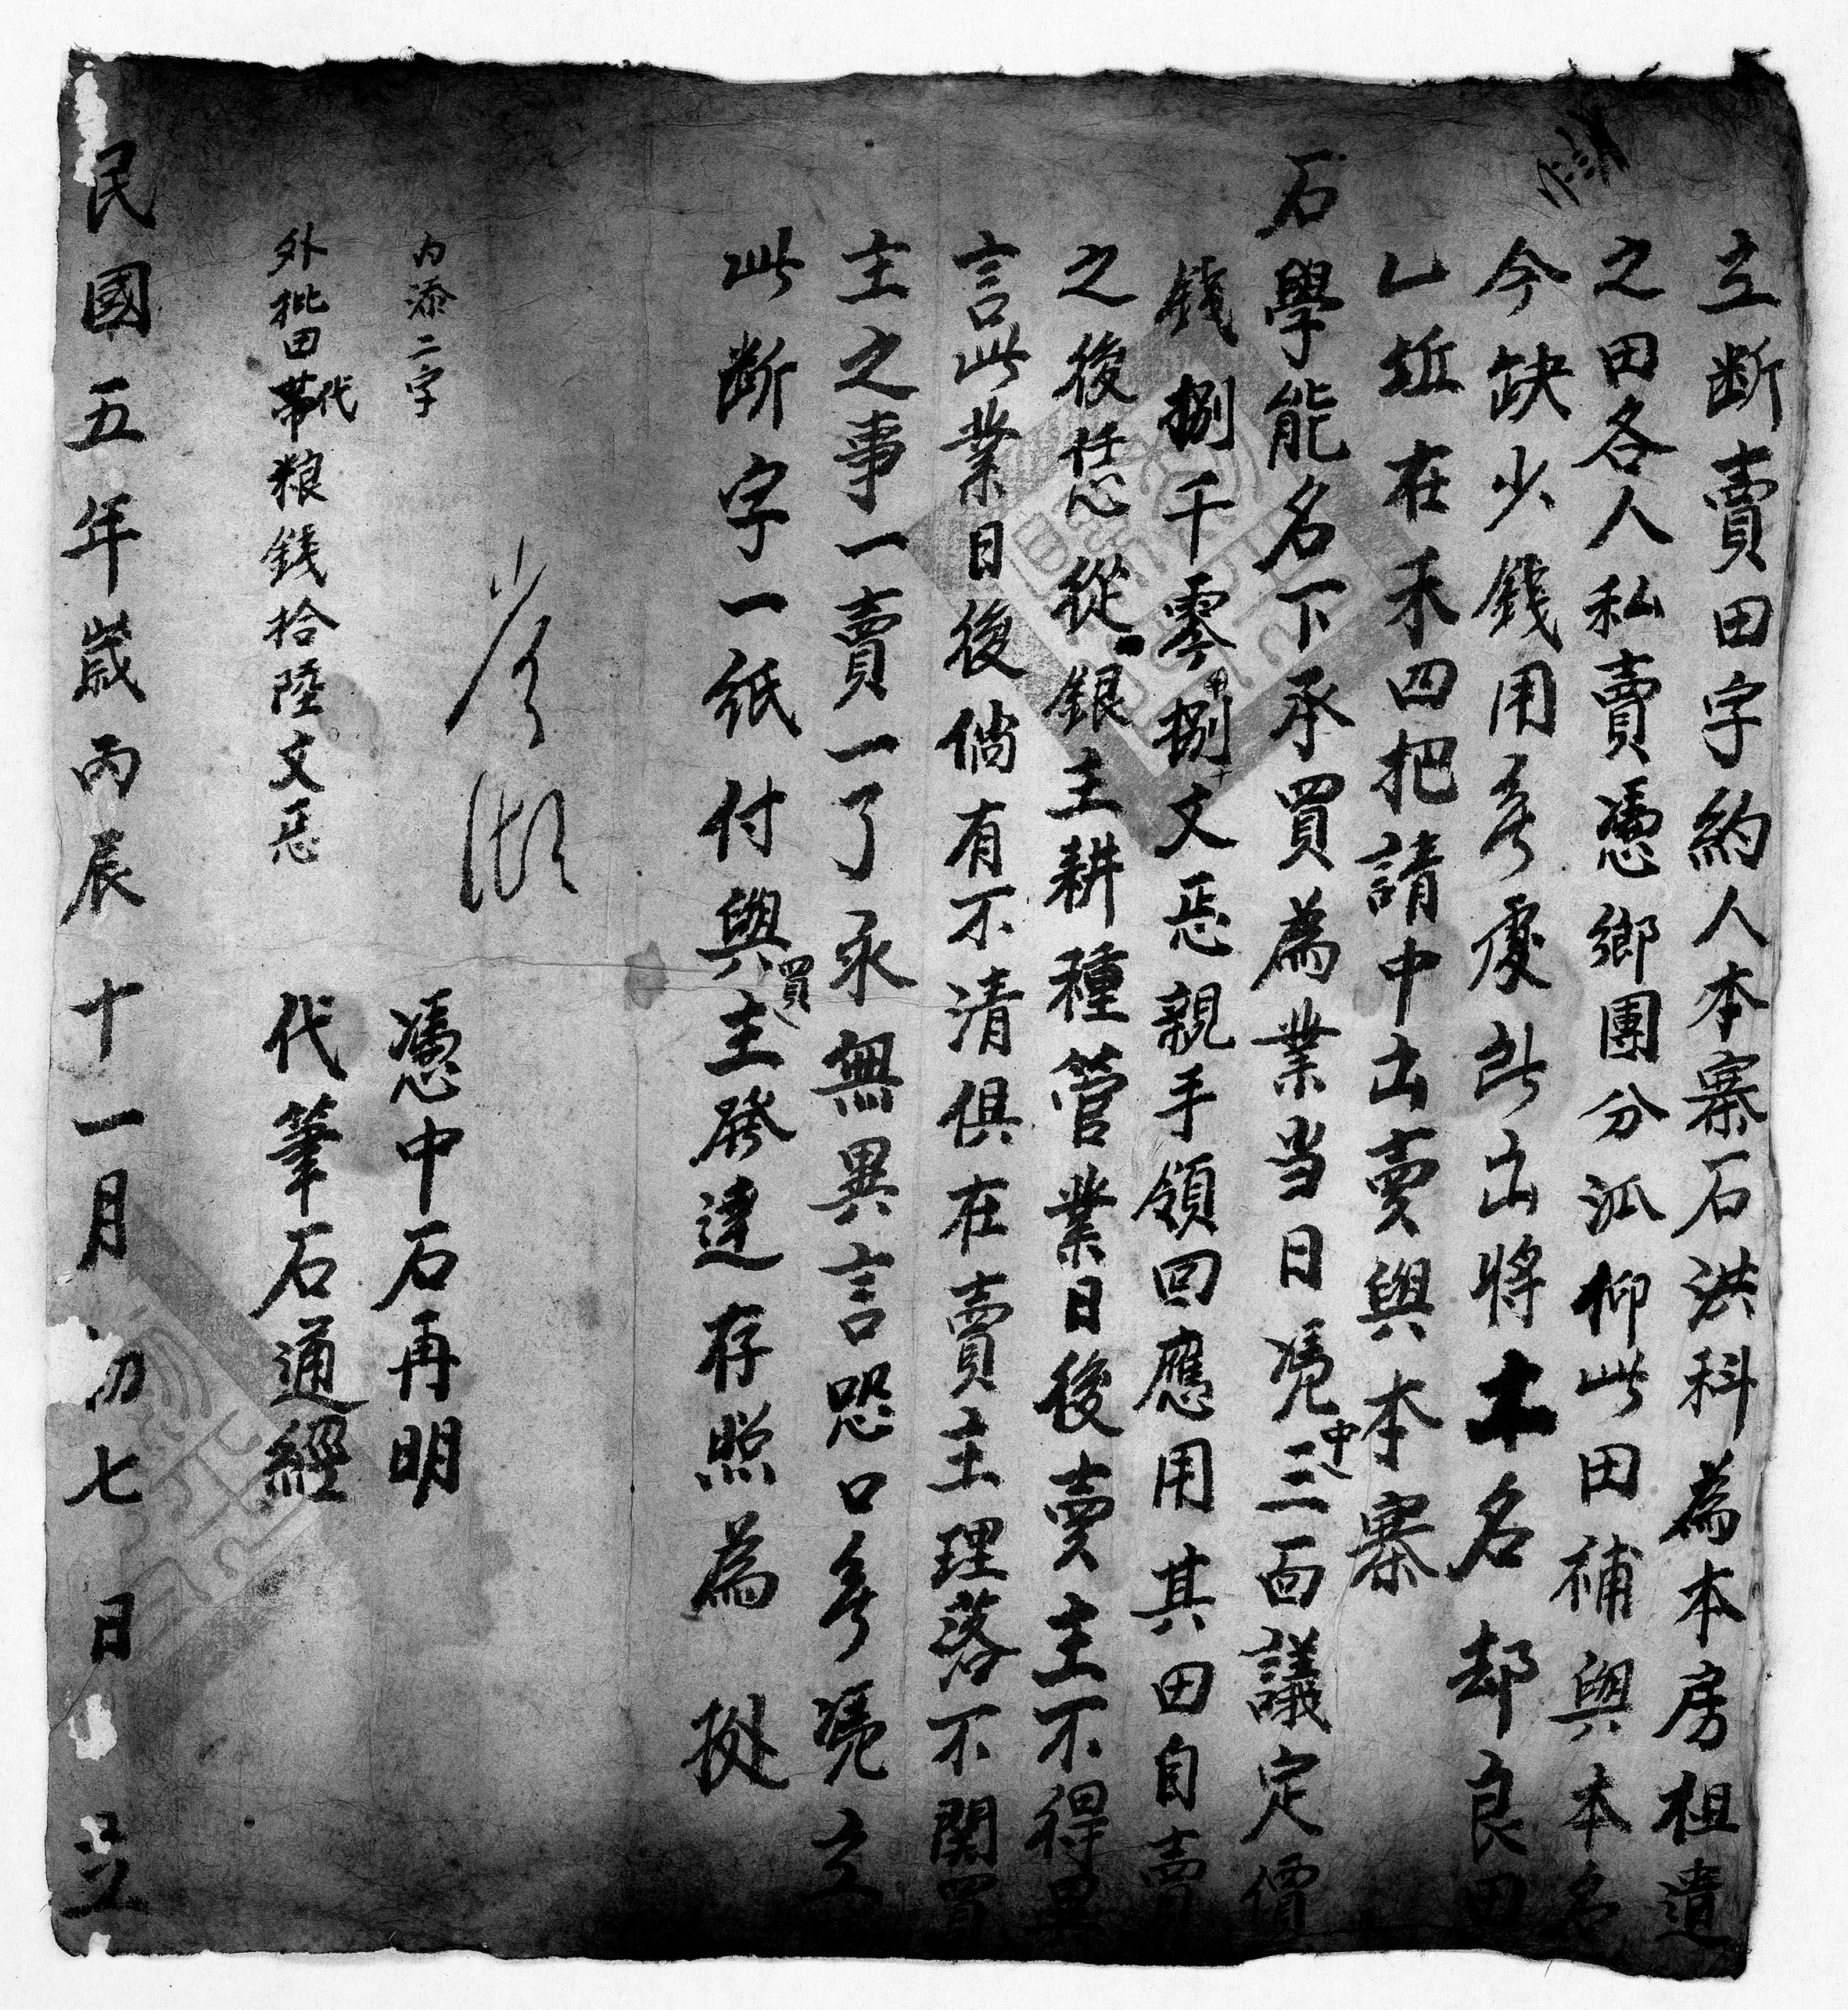 立断賣田字約人本寨石洪科為本房祖遺
之田各人私賣憑鄉團分派仰此田補與本名
今缺少錢用無處出將本名却良田
乙坵在禾四把請中出賣與本寨
石學能名下承買為業当日凴中三面議定價
錢捌千零捌文悪親手領回應用其田自賣
之後任從銀主耕種管業日後賣主不得異
言此業日後倘有不清俱在賣主理落不關買
主之事一賣一了永無異言恐口無凴立
此断字一紙付與買主發達存照為挀
内添二字
外批田代帯粮錢拾陸文悪
憑中石再明
代筆石通經
民國五年歲丙辰十一月初七日立